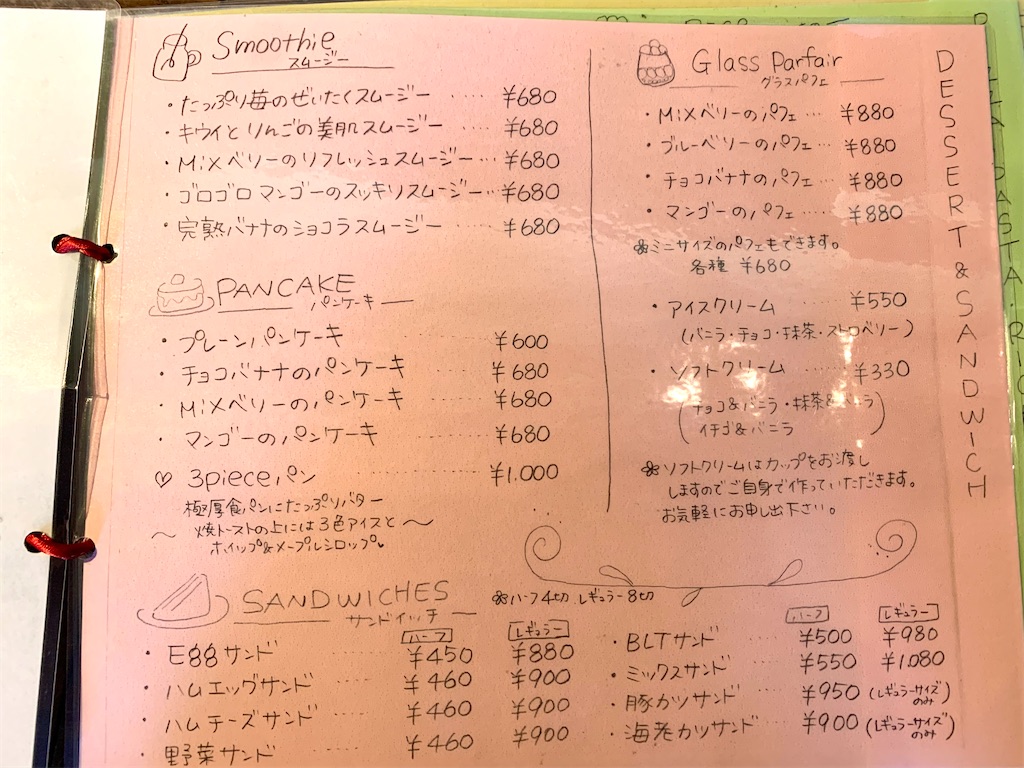 Smoothie
スムージー
・たっぷり苺のぜいたくスムージー ····· ¥680
・キウイとりんごの美肌スムージー ····· ¥680
・MiXベリーのリフレッシュスムージー··· ¥680
・ゴロゴロマンゴーのスッキリスムージー··· ¥680
・完熟バナナのショコラスムージー ····· ¥680
PANCAKE
パンケーキ
・プレーンパンケーキ ¥600
・チョコバナナのパンケーキ ¥680
・MiXベリーのパンケーキ ¥680
・マンゴーのパンケーキ ¥680
♡ 3pieceパン ¥1.000
極厚食パンにたっぷりバター
〜 焼トーストの上には3色アイスと 〜
ホイップ&メープルシロップ
Glass Parfair
グラスパフェ
・MiXベリーのパフェ··· ¥880
・ブルーベリーのパフェ·· ¥880
・チョコバナナのパフェ·· ¥880
・マンゴーのパフェ··· ¥880
ミニサイズのパフェもできます。
各種 ¥680
・アイスクリーム ····· ¥550
(バニラ・チョコ・抹茶・ストロベリー)
・ソフトクリーム ····· ¥330
(チョコ&バニラ・抹茶&バニラ
イチゴ&バニラ)
ソフトクリームはカップをお渡し
しますのでご自身で作っていただきます。
お気軽にお申し出下さい。
DESSERT & SANDWICH
SANDWICHES
サンドイッチ
ハーフ4切 レギュラー8切
ハーフ レギュラー
・Eggサンド ····· ¥450 ¥880
・ハムエッグサンド ¥460 ¥900
・ハムチーズサンド ····· ¥460 ¥900
・野菜サンド ····· ¥460 ¥900
ハーフ レギュラー
・BLTサンド ····· ¥500 ¥980
・ミックスサンド ····· ¥550 ¥1.080
・豚カツサンド ····· ¥950 (レギュラーサイズのみ)
・海老カツサンド ····· ¥900 (レギュラーサイズのみ)